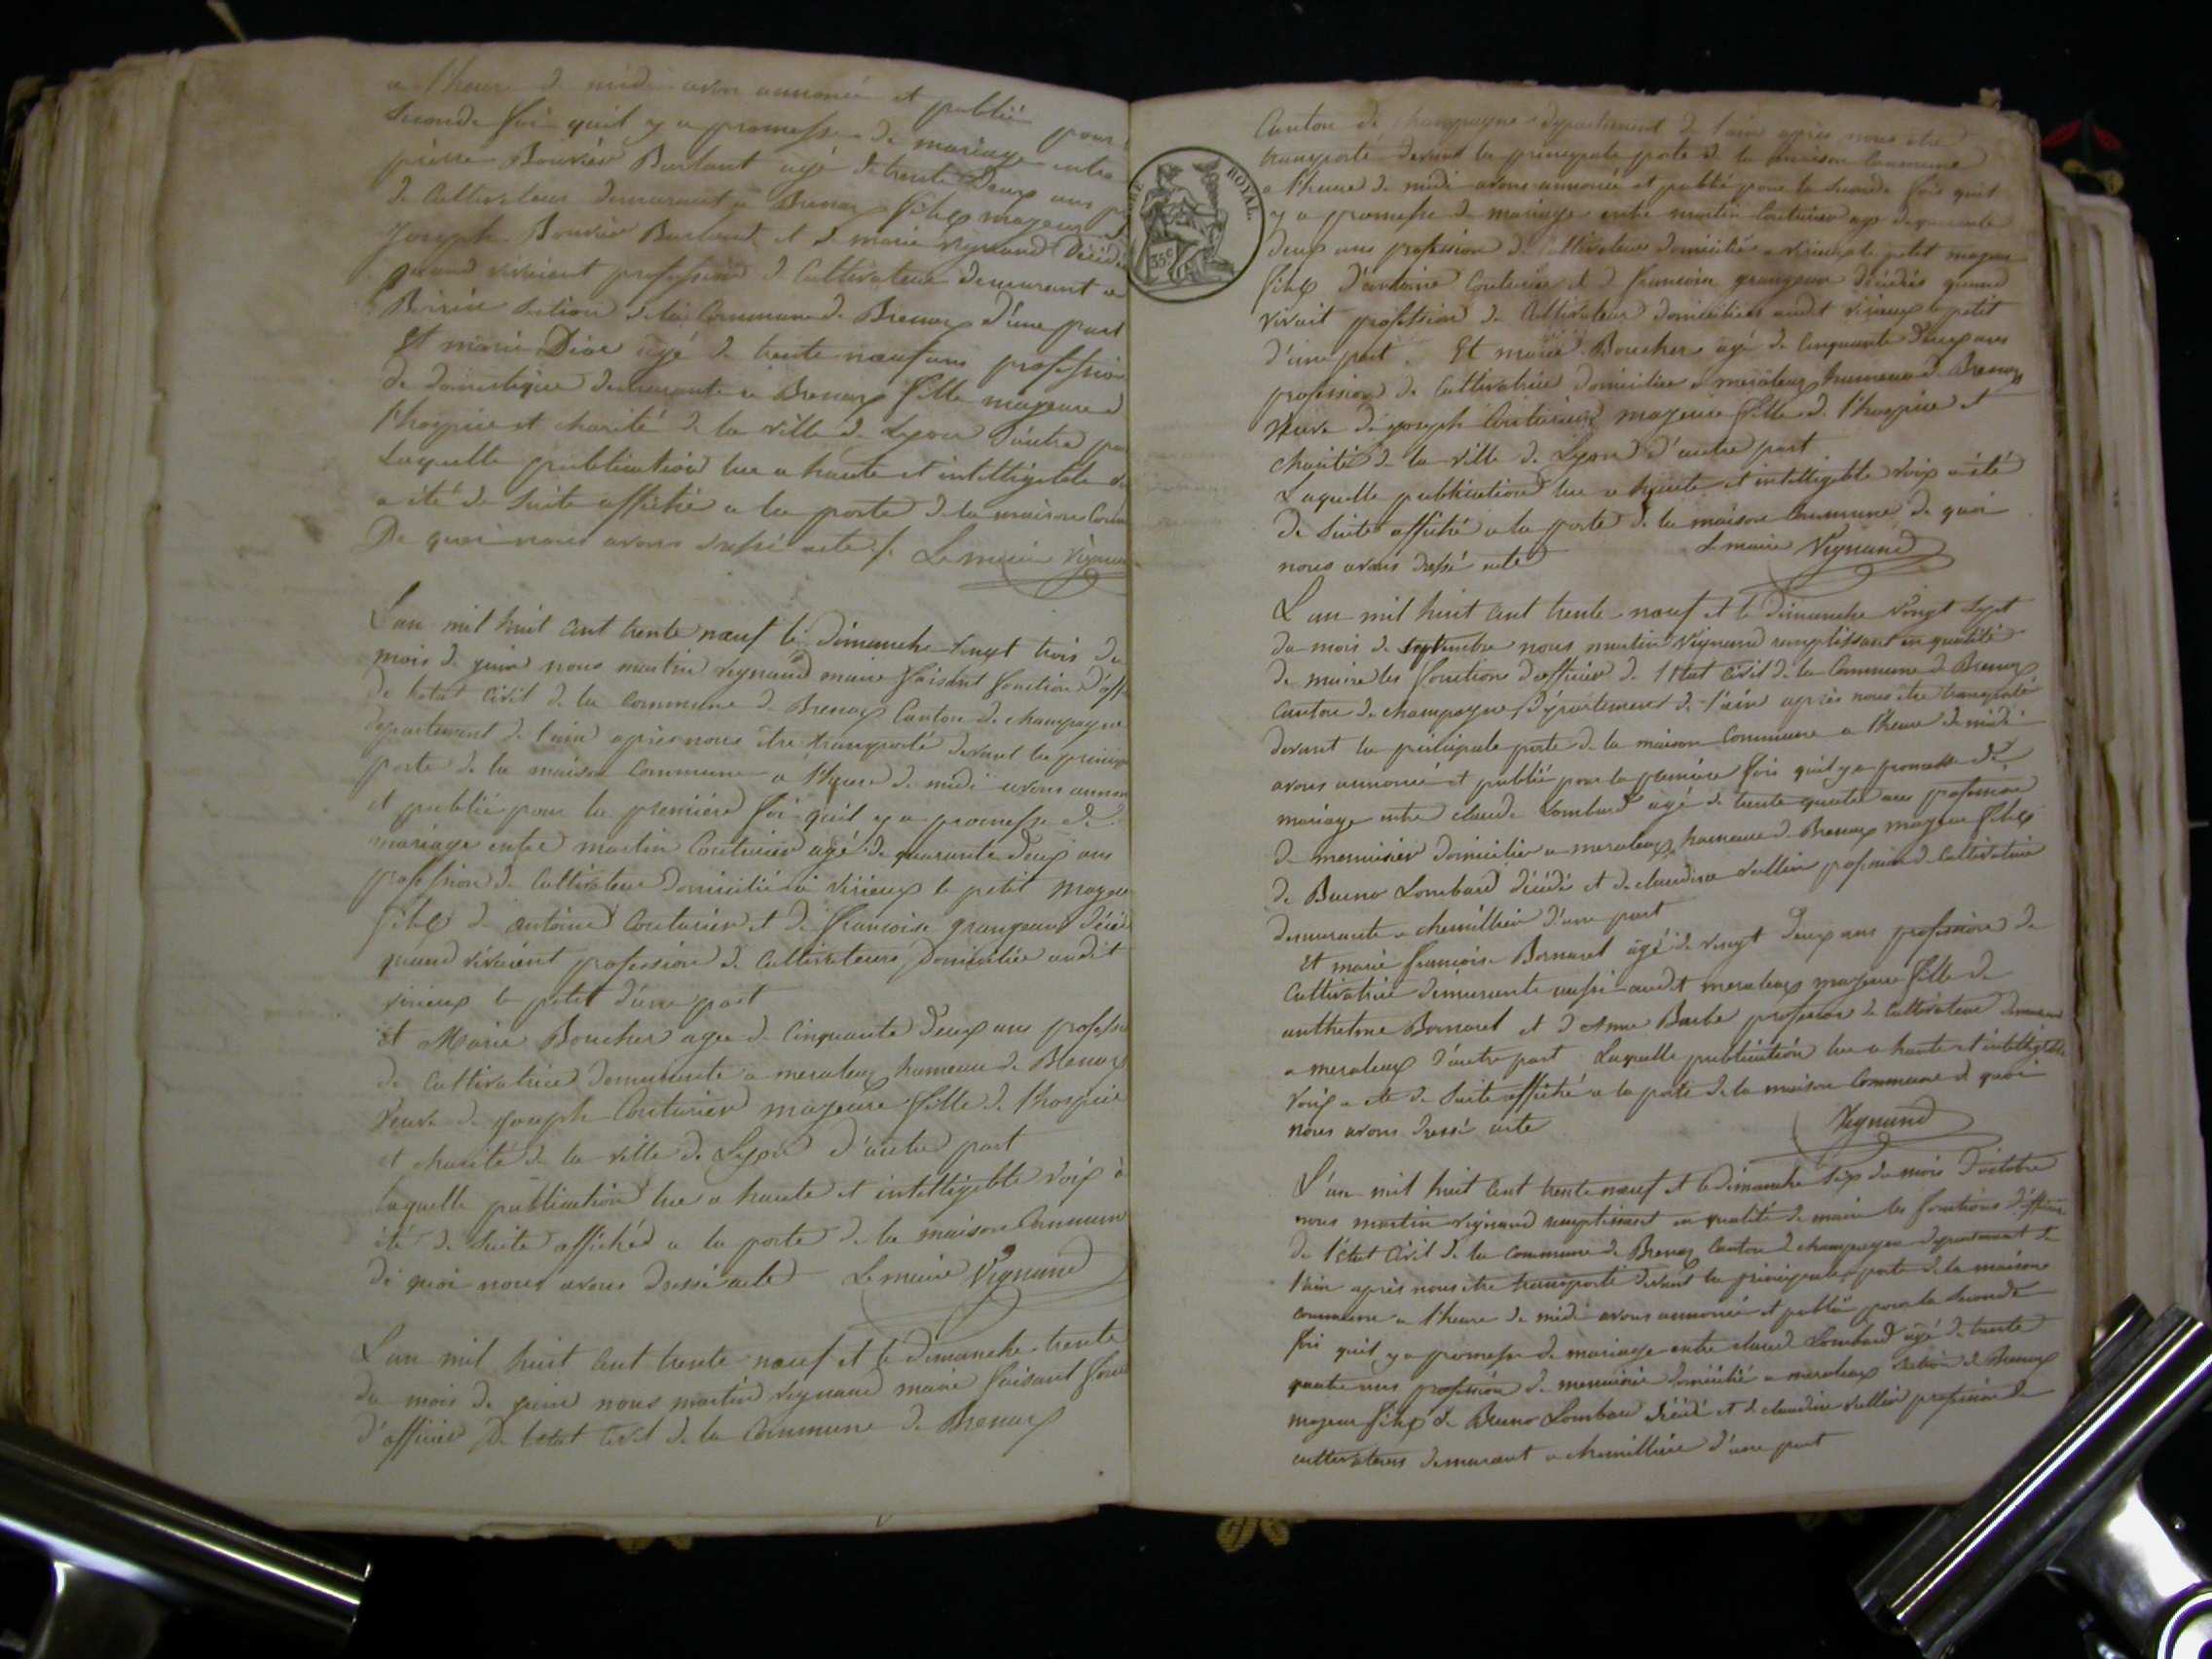 a l'heure de midi avons annoncé et publié pour
seconde fois quil y a promesse de mariage entre
pierre Bouvier Burlant agé de trente deux ans
de cultivateur demeurant a Brenaz fils majeur
Joseph Bouvier Burlant et de marie vignand décédé
quand vivaient profession de Cultivateur demeurant a
section de la Commune de Brenaz d'une part
Et marie Dioe agé de trente neuf ans profession
de domestique demeurante a Brenaz fille majeure de
l'hospice et charité de la ville de Lyon d'autre
Laquelle publication lue a haute et intelligible
a été de suite affiché a la porte de la maison
De quoi nous avons dressé acte Le maire
L'an mil huit cent trente neuf le dimanche vingt trois du
mois de juin nous martin vignand maire faisant fonction
de letat civil de la Commune de Brenaz Canton de champagne
departement de l'ain après nous être transporté devant la
porte de la maison commune a l'heure de midi avons
et publié pour la premiere foi quil y a promesse de
mariage entre martin Couturier agé de quarante deux ans
profession de Cultivateur domicilié a virieux le petit
fils de antoine Couturier et de francoise grangean
quand vivaient profession de Cultivateurs, domiciliés audit
virieux le petit d'une part
et Marie Boucher agee de Cinquante deux ans
de Cultivatrice demeurante a meraleaz hameau de Brenaz
veuve de joseph Couturier majeure fille de l'hospice
et charité de la ville de Lyon d'autre part
Laquelle publication lue a haute et intelligible voix a
été de suite affiché a la porte de la maison Commune
de quoi nous avons dressé acte Le maire Vignand
L'an mil huit cent trente neuf et le dimanche trente
du mois de juin nous martin vignand maire faisant
d'officier de letat civil de la Commune de Brenaz
ROYAL.
35c
Canton de champagne departement de l'ain après nous etre
transporté devant la principale porte de la maison Commune
a l'heure de midi avons annoncé et publié pour la seconde fois quil
y a promesse de mariage entre martin Couturier agé de quarante
deux ans profession de Cultivateur domicilié a virieux le petit majeur
fils d'antoine Couturier et de francoise grangean décédés quand
vivait profession de Cultivateur domiciliers audit virieux le petit
d'une part. Et marie Boucher agé de Cinquante deux ans
profession de Cultivatrice domiciliée a meraleaz hameau de Brenaz
veuve de joseph Couturier majeure fille de l'hospice et
charité de la ville de Lyon d'autre part
Laquelle publication lue a haute et intelligible voix a été
de suite affiché a la porte de la maison Commune de quoi
nous avons dressé acte Le maire Vignand
L'an mil huit cent trente neuf et le dimanche vingt sept
du mois de septembre nous martin Vignand remplissant en qualité
de maire les fonctions d'officier de l'état civil de la Commune de Brenaz
Canton de champagne, département de l'ain après nous être transporté
devant la principale porte de la maison Commune a l'heure de midi
avons annoncé et publié pour la première fois quil y a promesse de
mariage entre claude Lombard agé de trente quatre ans profession
de menuisier domicilier a meraleaz hameau de Brenaz majeur fils
de Bruno Lombard décédé et de claudine vullier profession de Cultivatrice
demeurante a chemillieu d'une part
Et marie francoise Bornarel agé de vingt deux ans profession de
Cultivatrice demeurante aussi audit meraleaz majeure fille de
anthelme Bornarel et d'Anne Barbe profession de Cultivateur
a meraleaz d'autre part Laquelle publication lue a haute et intelligible
voix a été de suite affiché a la porte de la maison Commune de quoi
nous avons dressé acte Vignand
L'an mil huit cent trente neuf et le dimanche six du mois d'octobre
nous martin vignand remplissant en qualité de maire les fonctions d'officier
de l'état civil de la commune de Brenaz Canton de champagne departement de
l'ain après nous être transporté devant la principale porte de la maison
commune a l'heure de midi avons annoncé et publié pour la seconde
fois quil y a promesse de mariage entre claude Lombard agé de trente
quatre ans profession de menuisier domicilié a meraleaz section de Brenaz
majeur fils de Bruno Lombard décédé et de claudine vullier profession de
cultivateurs demeurant a chemillieu d'une part